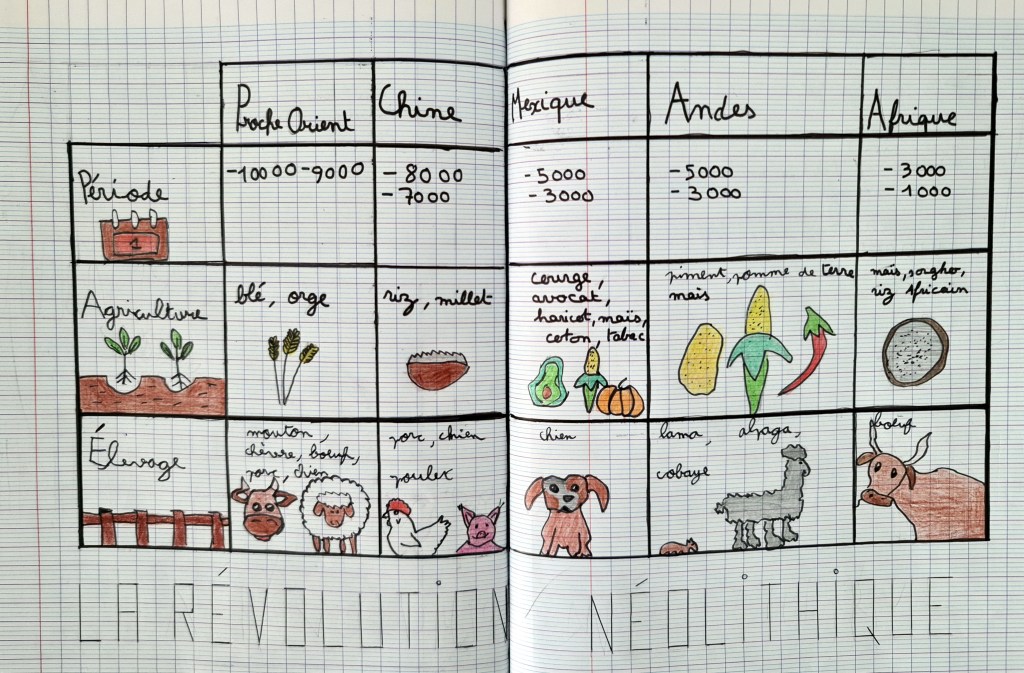 Proche Orient
Chine
Mexique
Andes
Afrique
Période
1
-10000 -9000
- 8000
- 7000
- 5000
- 3000
- 5000
- 3000
- 3000
- 1000
Agriculture
blé, orge
riz, millet
courge,
avocat,
haricot, maïs,
coton, tabac
piment, pomme de terre
maïs
maïs, sorgho,
riz Africain
Élevage
mouton,
chèvre, boeuf,
porc, chien
porc, chien
poulet
chien
lama, alpaga,
cobaye
boeuf
LA RÉVOLUTION NÉOLITHIQUE